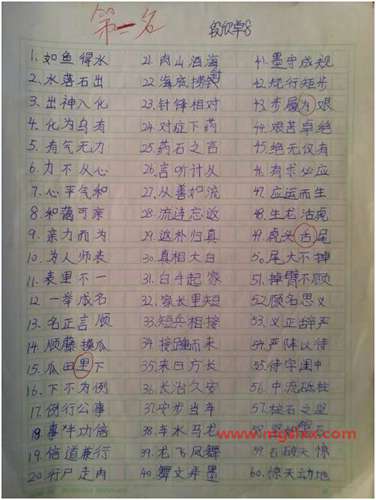 第一名
1. 如鱼得水
2. 水落石出
3. 出神入化
4. 化为乌有
5. 有气无力
6. 力不从心
7. 心平气和
8. 和蔼可亲
9. 亲力而为
10. 为人师表
11. 表里不一
12. 一举成名
13. 名正言顺
14. 顺藤摸瓜
15. 瓜田里下
16. 下不为例
17. 例行公事
18. 事半功倍
19. 倍道兼行
20. 行尸走肉
21. 肉山酒海
22. 海底捞针
23. 针锋相对
24. 对症下药
25. 药石之言
26. 言听计从
27. 从善如流
28. 流连忘返
29. 返朴归真
30. 真相大白
31. 白手起家
32. 家长里短
33. 短兵相接
34. 接踵而来
35. 来日方长
36. 长治久安
37. 安步当车
38. 车水马龙
39. 龙飞凤舞
40. 舞文弄墨
41. 墨守成规
42. 规行矩步
43. 步履为艰
44. 艰苦卓绝
45. 绝无仅有
46. 有求必应
47. 应运而生
48. 生龙活虎
49. 虎头舌尾
50. 尾大不掉
51. 掉臂不顾
52. 顾名思义
53. 义正辞严
54. 严阵以待
55. 待字闺中
56. 中流砥柱
57. 柱石之坚
58.
59. 石破天惊
60. 惊天动地